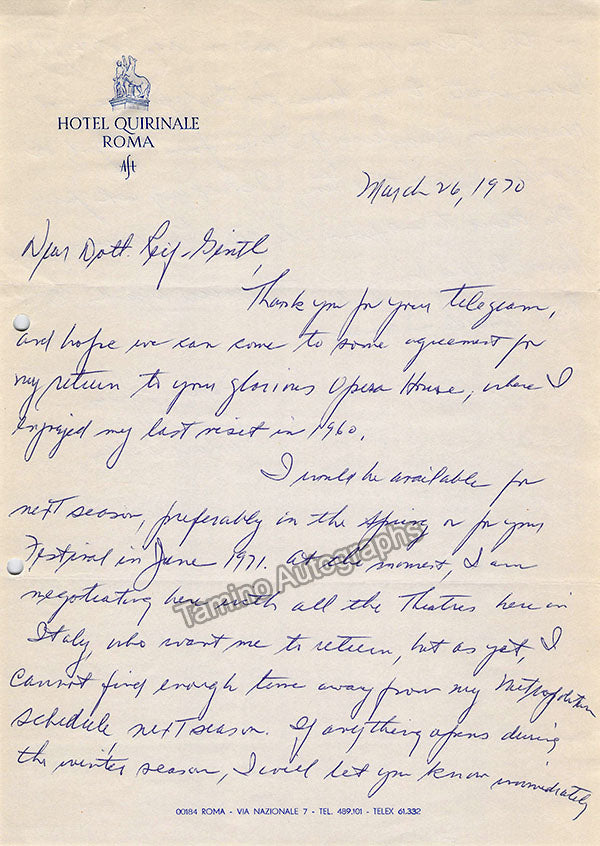 HOTEL QUIRINALE
ROMA
March 26, 1970
Dear Dott.
Thank you for your telegram,
and hope we can come to some agreement for
my return to your glorious Opera House, where I
enjoyed my last visit in 1960.
I would be available for
next season, preferably in the Spring or for your
Festival in June 1971. At the moment, I am
negotiating here with all the Theatres here in
Italy, who want me to return, but as yet, I
cannot find enough time away from my Metropolitan
schedule, next season. If anything opens during
the winter season, I will let you know immediately
Tamino Autographs
00184 ROMA - VIA NAZIONALE 7 - TEL. 489.101 - TELEX 61.332